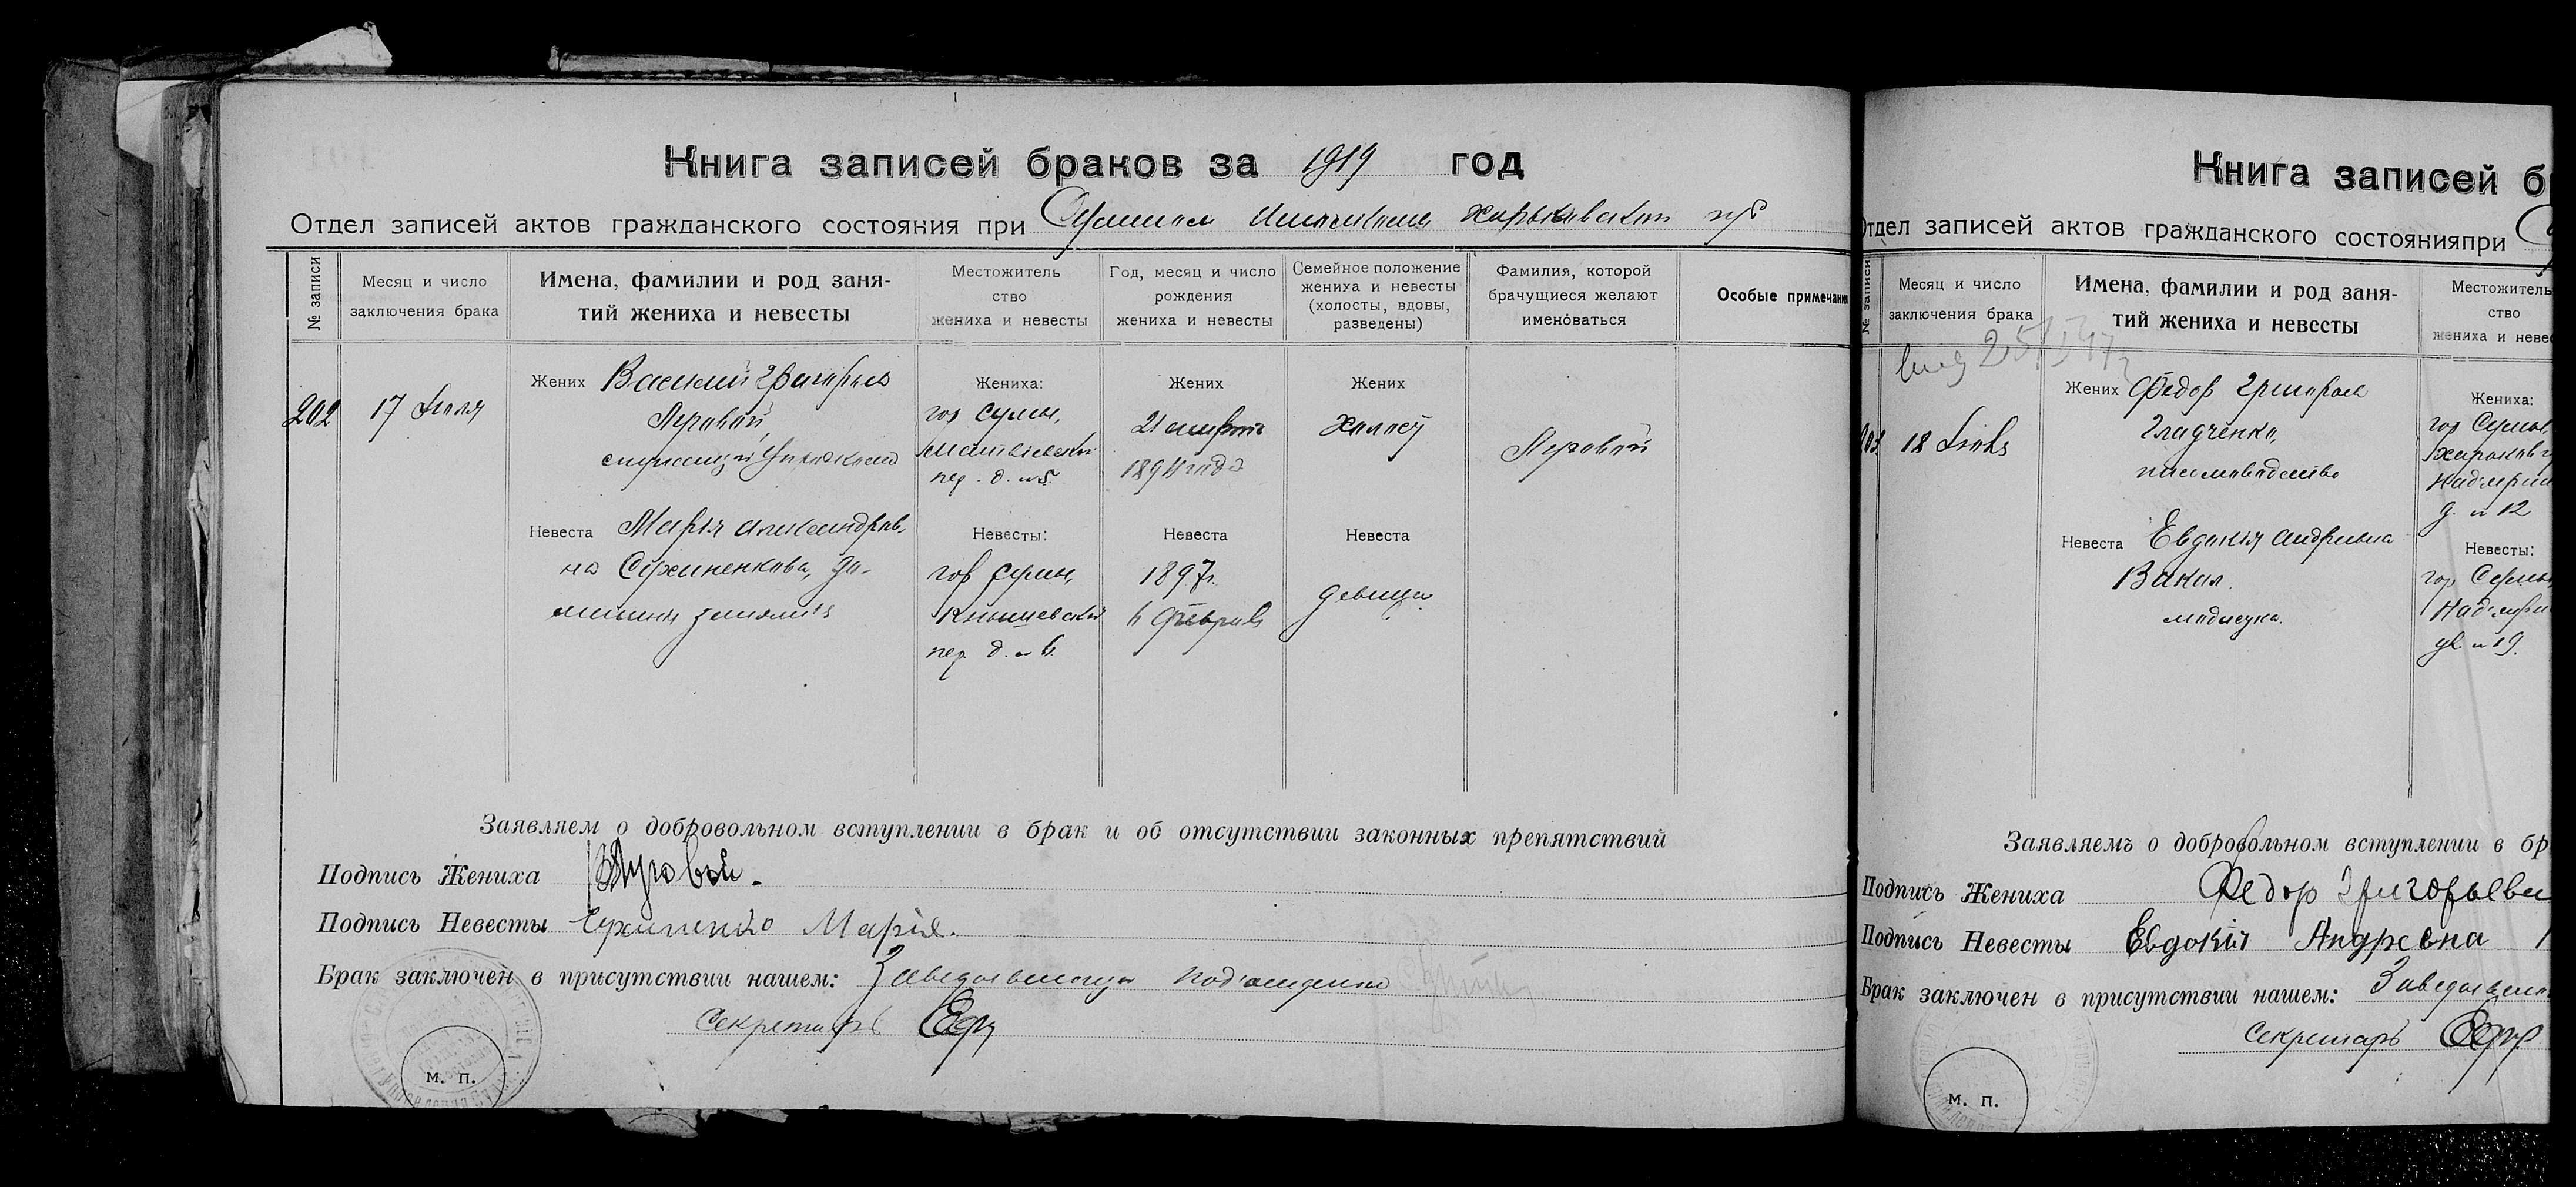 Книга записей браков за 1919 год
Отдел записей актов гражданского состояния при Сумском Исполкоме Харьковской губ
№ записи
Месяц и число
заключения брака
Имена, фамилии и род заня-
тий жениха и невесты
Местожитель
ство
жениха и невесты
Год, месяц и число
рождения
жениха и невесты
Семейное положение
жениха и невесты
(холосты, вдовы,
разведены)
Фамилия, которой
брачущиеся желают
именоваться
Особые примечани
202
17 Июля
Жених Василий Григорьев
служащий
Невеста Марія Александров-
на Сухиненкова, до-
машнія занятія
Жениха:
гор Сумы,
пер. д. №5.
Невесты:
гор Сумы,
Кнышевский
пер д. № 6.
Жених
21
года
Невеста
1897г.
6 Февраля
Жених
Холост
Невеста
девица
Заявляем о добровольном вступлении в брак и об отсутствии законных препятствий
Подпись Жениха
Подпись Невесты Сухиненко Марія.
Брак заключен в присутствии нашем: Заведывающий Подотделом
Секретарь
М. П.
Книга записей б
Отдел записей актов гражданского состоянияпри
записи
Месяц и число
заключения брака
Имена, фамилии и род заня-
тий жениха и невесты
Местожитель
ство
жениха и невес
18 Июль
Жених Федор Григорьев
Гладченко,
письмоводство
Невеста Евдокія Андреевна
Вакал.
модистка.
Жениха:
гор Сумы,
д. № 12
Невесты:
гор. Сумы
№ 19.
Заявляемъ о добровольном вступлении в бр
Подпись Жениха Федор Григорьеви
Подпись Невесты Евдокія Андревна
Брак заключен в присутствии нашем:
Секретарь
М. П.